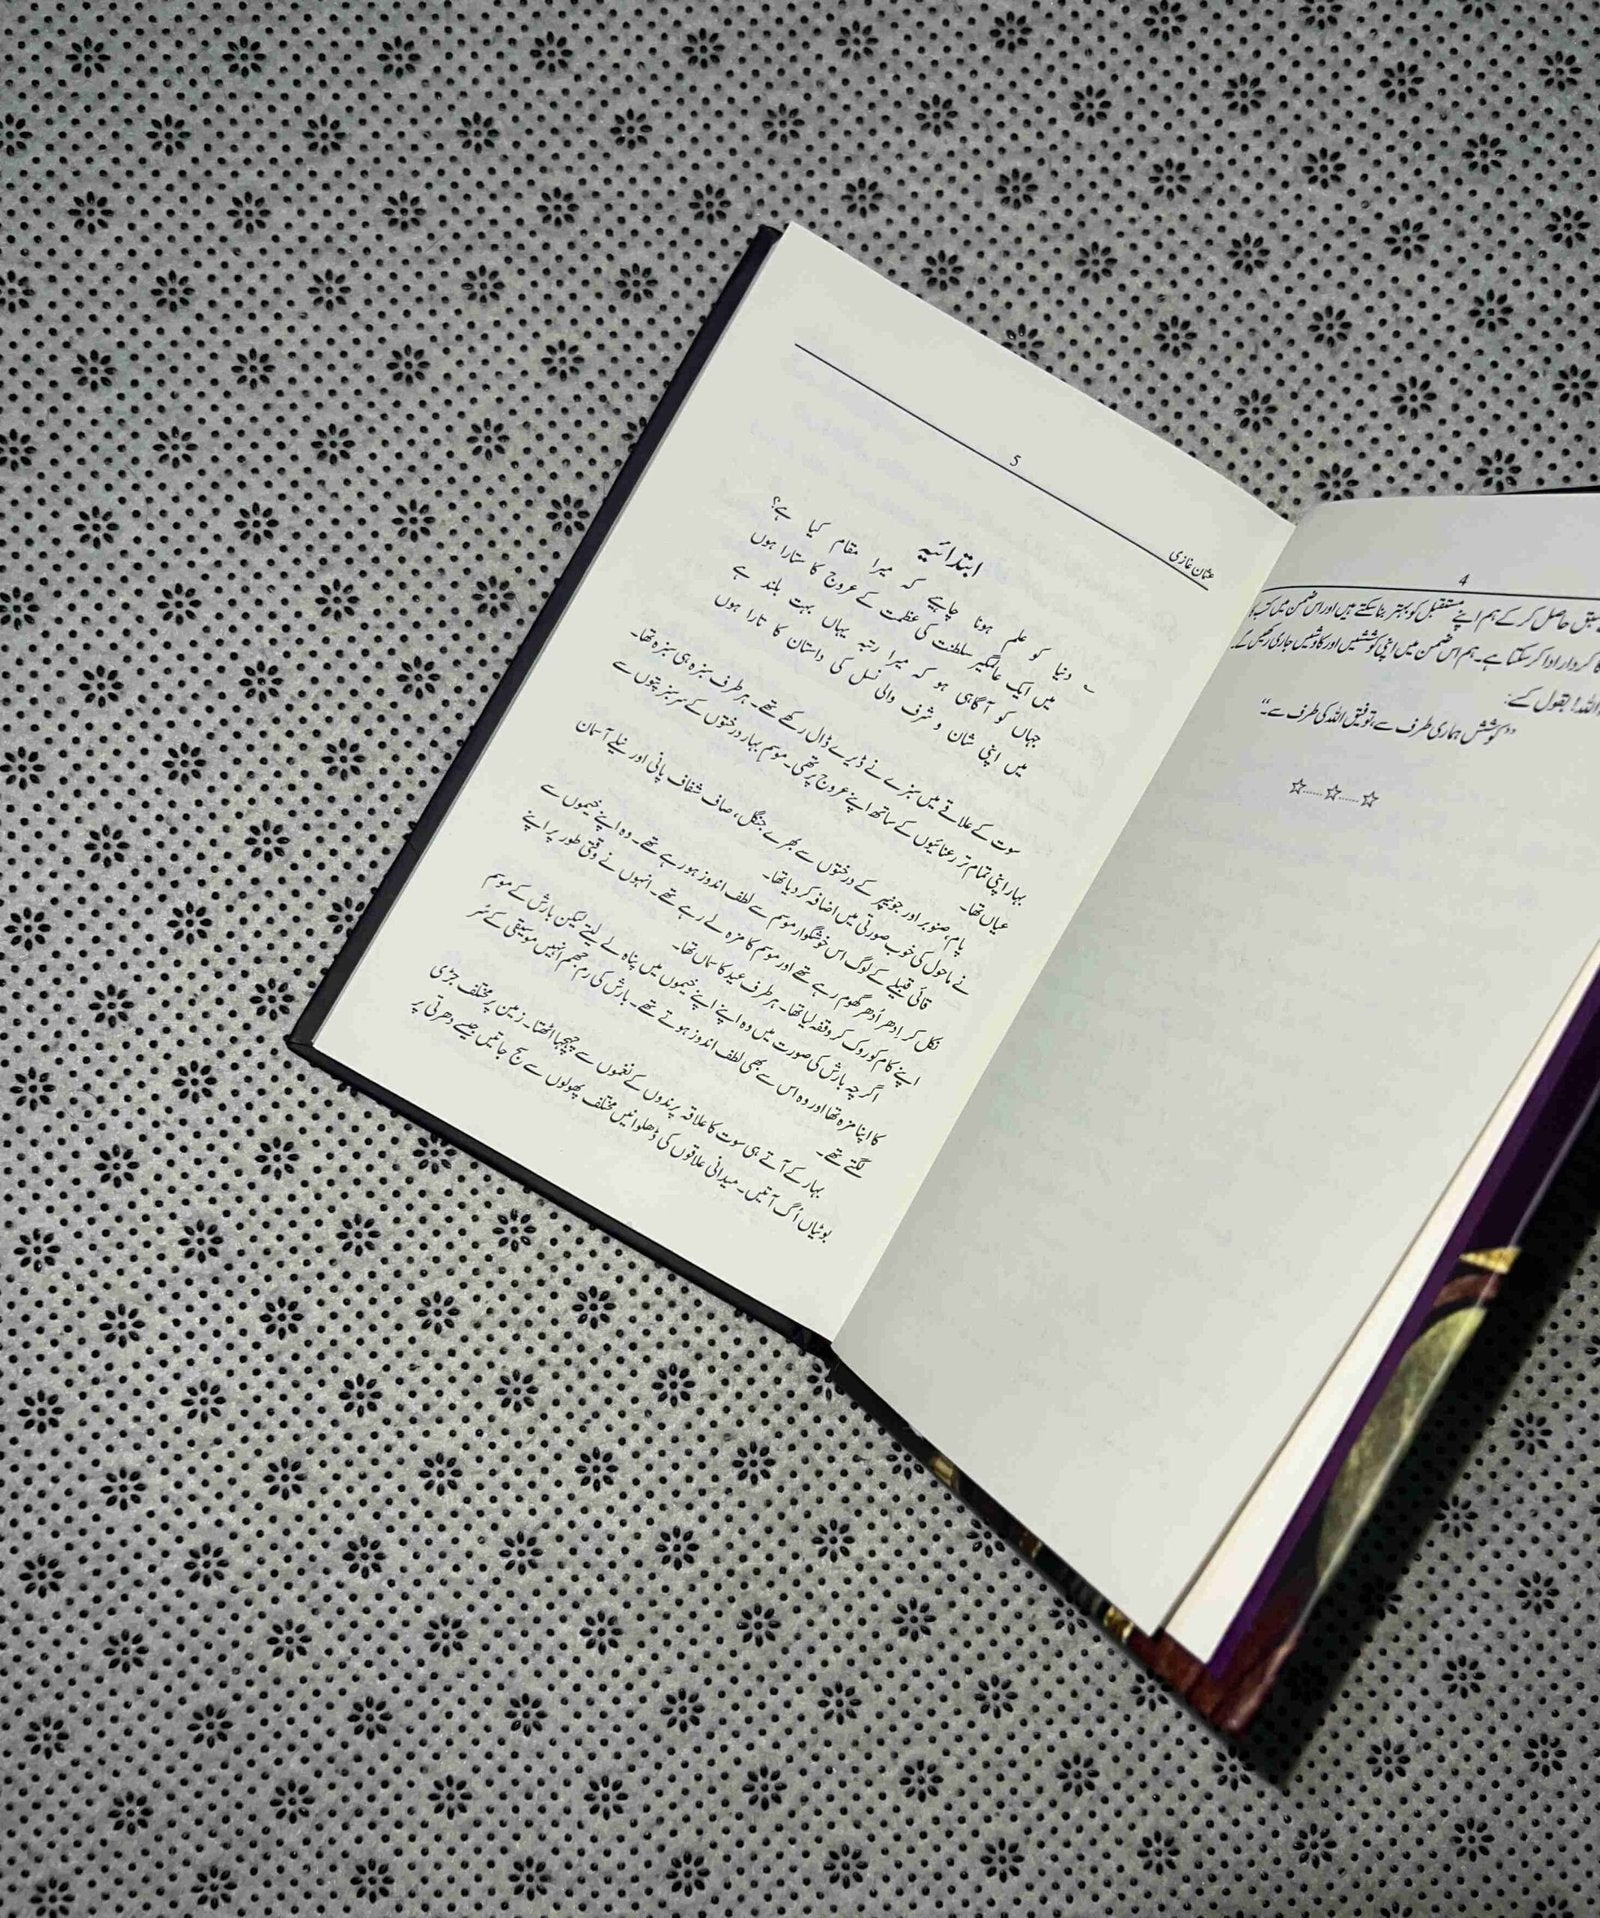 4
سبق حاصل کر کے ہم اپنے مستقبل کو بہتر بنا سکتے ہیں اور اس ضمن میں کتب
کردار ادا کر سکتا ہے۔ ہم اس ضمن میں اپنی کوششیں اور کاوشیں جاری رکھیں گے۔
اللہ! بقول کے:
”کوشش ہماری طرف سے، توفیق اللہ کی طرف سے۔“
☆.....☆.....☆
عثمان غازی
5
ابتدائیہ
؎ دنیا کو علم ہونا چاہیے کہ میرا مقام کیا ہے؟
میں ایک عالمگیر سلطنت کی عظمت کے عروج کا ستارا ہوں
جہاں کو آگاہی ہو کہ میرا رتبہ یہاں بہت بلند ہے
میں اپنی شان و شرف والی نسل کی داستان کا تارا ہوں
سوت کے علاقے میں سبزے نے ڈیرے ڈال رکھے تھے۔ ہر طرف سبزہ ہی سبزہ تھا۔
بہار اپنی تمام تر رعنائیوں کے ساتھ اپنے عروج پر تھی۔ موسم بہار درختوں کے سرسبز پتوں سے
عیاں تھا۔
پام، صنوبر اور جونیپر کے درختوں سے بھرے جنگل، صاف شفاف پانی اور نیلے آسمان
نے ماحول کی خوب صورتی میں اضافہ کر دیا تھا۔
قائی قبیلے کے لوگ اس خوشگوار موسم سے لطف اندوز ہو رہے تھے۔ وہ اپنے خیموں سے
نکل کر اِدھر اُدھر گھوم رہے تھے اور موسم کا مزہ لے رہے تھے۔ انہوں نے وقتی طور پر اپنے
اپنے کام کو روک کر وقفہ لیا تھا۔ ہر طرف عید کا سماں تھا۔
اگرچہ بارش کی صورت میں وہ اپنے اپنے خیموں میں پناہ لے لیتے لیکن بارش کے موسم
کا اپنا مزہ تھا اور وہ اس سے بھی لطف اندوز ہوتے تھے۔ بارش کی رم جھم انہیں موسیقی کے سُر
لگتے تھے۔
بہار کے آتے ہی سوت کا علاقہ پرندوں کے نغموں سے چہچہا اٹھتا۔ زمین پر مختلف جڑی
بوٹیاں اُگ آتیں۔ میدانی علاقوں کی ڈھلوانیں مختلف پھولوں سے سج جاتیں جیسے دھرتی پر